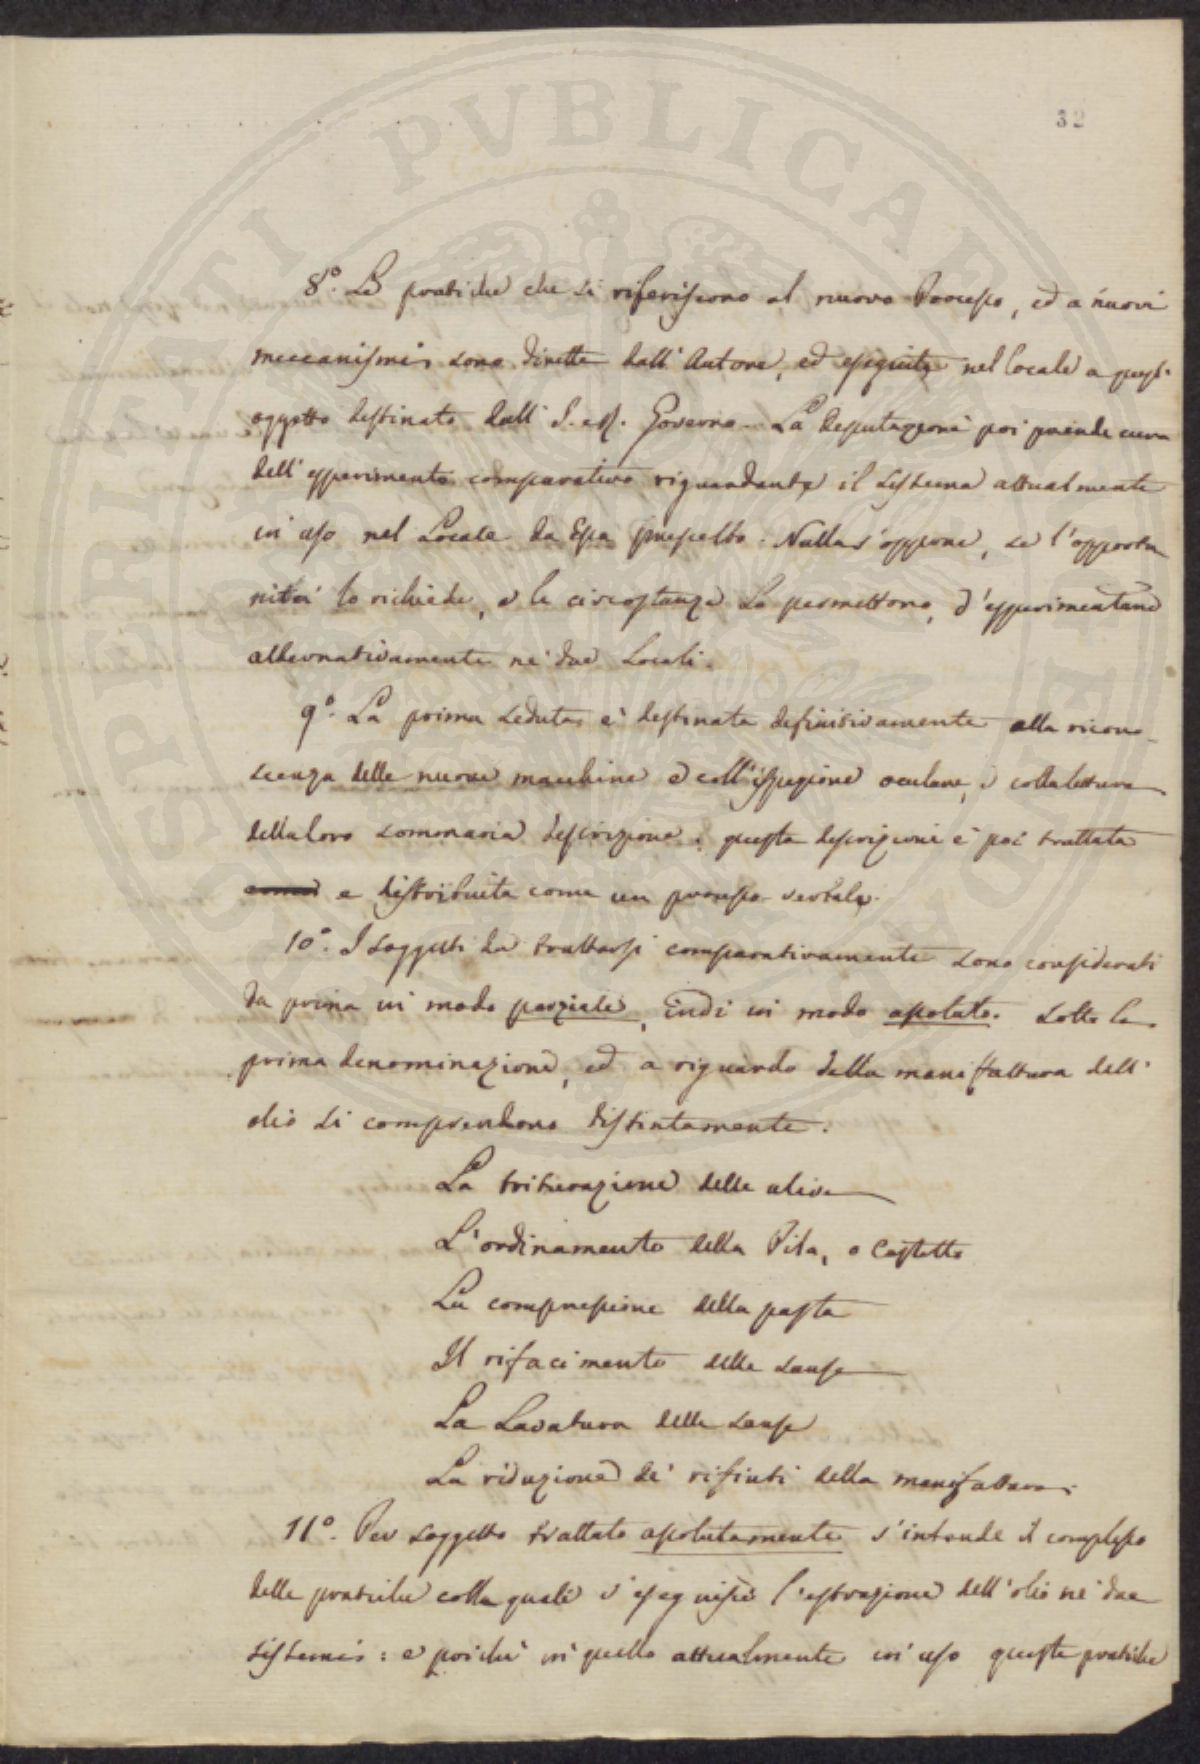 32
8°. Le pratiche che si riferiscono al nuovo Processo, ed a nuovi
meccanismi sono dirette dall'Autore, ed eseguite nel locale a quest'
oggetto destinato dall' I. e R. Governo. La Deputazione poi prende cura
dell'esperimento comparativo riguardante il sistema attualmente
in uso nel Locale da Essa prescelto. Nulla s'oppone, se l'opportu
nità lo richiede, e le circostanze lo permettono, d'esperimentare
alternativamente ne' due Locali.
9°. La prima seduta è destinata definitivamente alla ricono-
scenza delle nuove macchine e coll'ispezione oculare, e colla lettura
della loro sommaria descrizione. questa descrizione è poi trattata
e distribuita come un processo verbale.
10°. I soggetti da trattarsi comparativamente sono considerati
da prima in modo parziale, indi in modo assoluto. Sotto la
prima denominazione, ed a riguardo della manifattura dell'
olio si comprendono distintamente.
La triturazione delle ulive
L'ordinamento della Pila, o Castello
La compressione della pasta
Il rifacimento delle sanse
La Lavatura delle sanse
La riduzione de' rifiuti della manifattura.
11°. Per soggetto trattato assolutamente s'intende il complesso
delle pratiche colle quali s'eseguisce l'estrazione dell'olio ne' due
sistemi: e poichè in quello attualmente in uso queste pratiche
PROSPERITATI PVBLICAE